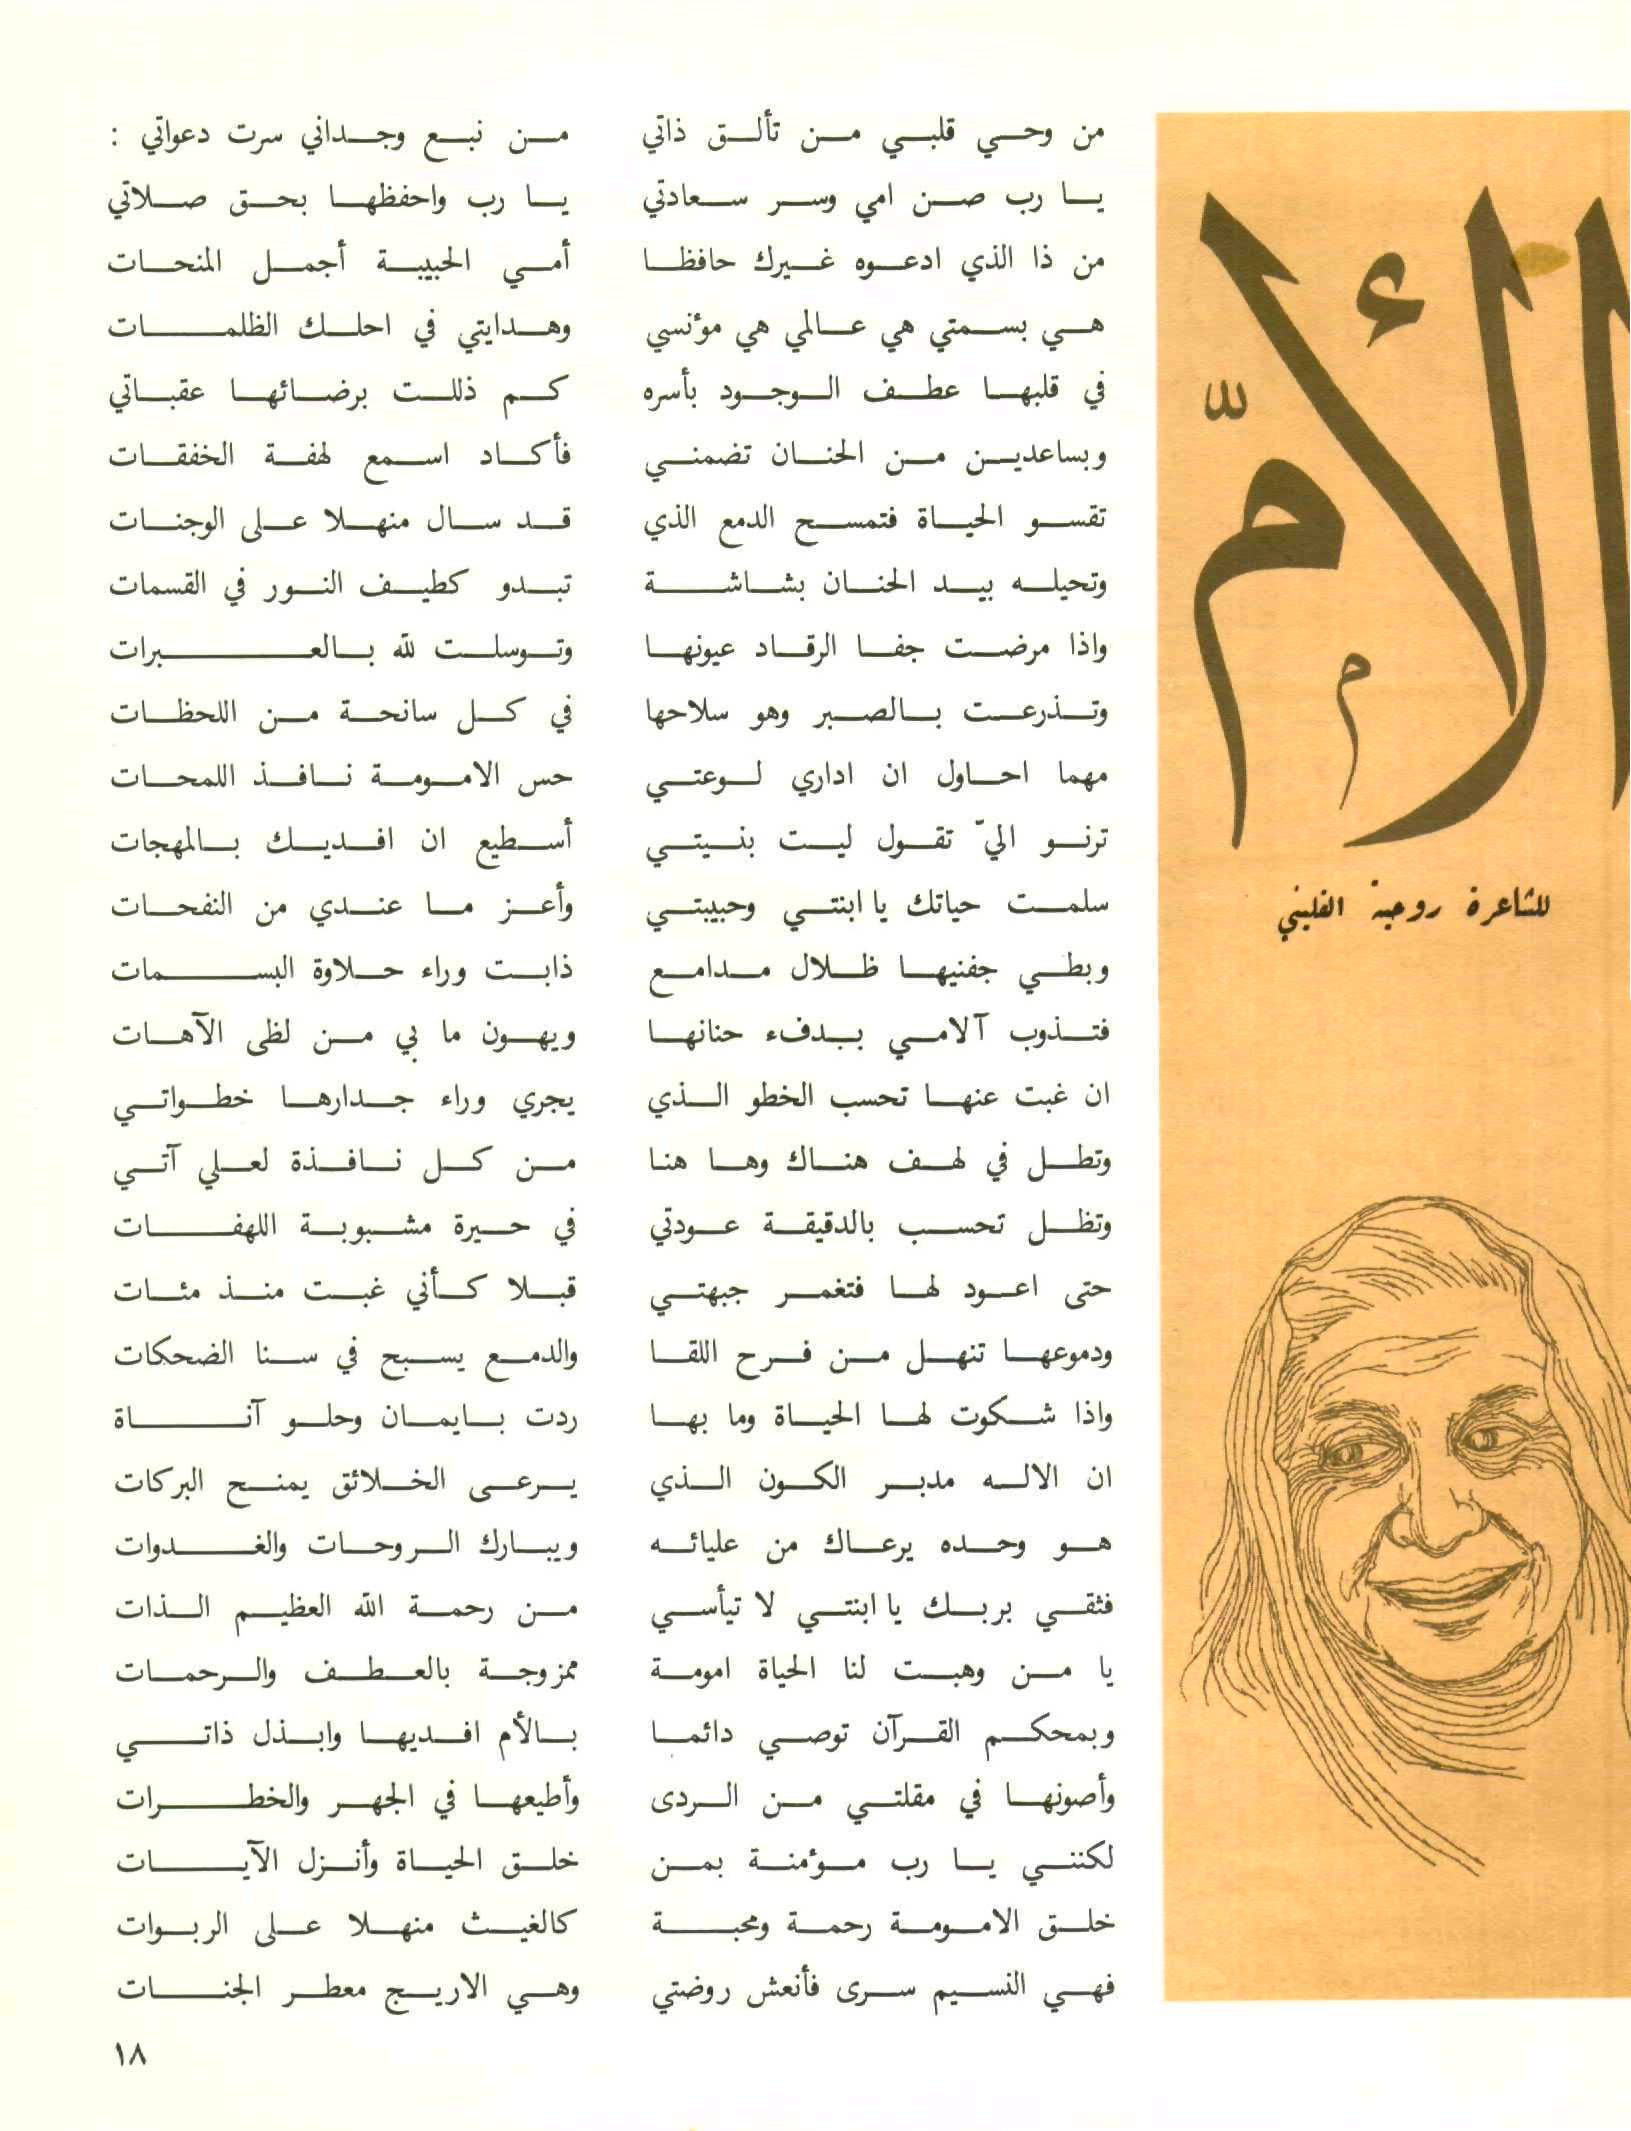 الأمّ
للشاعرة روحية القليني
من وحي قلبي من تألق ذاتي من نبع وجداني سرت دعواتي :
يا رب صن امي وسر سعادتي يا رب واحفظها بحق صلاتي
من ذا الذي ادعوه غيرك حافظا أمي الحبيبة أجمل المنحات
هي بسمتي هي عالمي هي مؤنسي وهدايتي في احلك الظلمات
في قلبها عطف الوجود بأسره كم ذللت برضائها عقباتي
وبساعدين من الحنان تضمني فأكاد اسمع لهفة الخفقات
تقسو الحياة فتمسح الدمع الذي قد سال منهلا على الوجنات
وتحيله بيد الحنان بشاشة تبدو كطيف النور في القسمات
واذا مرضت جفا الرقاد عيونها وتوسلت لله بالعبرات
وتذرعت بالصبر وهو سلاحها في كل سانحة من اللحظات
مهما احاول ان اداري لوعتي حس الامومة نافذ اللمحات
ترنو اليّ تقول ليت بنيتي أسطيع ان افديك بالمهجات
سلمت حياتك يا ابنتي وحبيبتي وأعز ما عندي من النفحات
وبطي جفنيها ظلال مدامع ذابت وراء حلاوة البسمات
فتذوب آلامي بدفء حنانها ويهون ما بي من لظى الآهات
ان غبت عنها تحسب الخطو الذي يجري وراء جدارها خطواتي
وتطل في لهف هناك وها هنا من كل نافذة لعلي آتي
وتظل تحسب بالدقيقة عودتي في حيرة مشبوبة اللهفات
حتى اعود لها فتغمر جبهتي قبلا كأني غبت منذ مئات
ودموعها تنهل من فرح اللقا والدمع يسبح في سنا الضحكات
واذا شكوت لها الحياة وما بها ردت بايمان وحلو آناة
ان الاله مدبر الكون الذي يرعى الخلائق يمنح البركات
هو وحده يرعاك من عليائه ويبارك الروحات والغدوات
فثقي بربك يا ابنتي لا تيأسي من رحمة الله العظيم الذات
يا من وهبت لنا الحياة امومة ممزوجة بالعطف والرحمات
وبمحكم القرآن توصي دائما بالأم افديها وابذل ذاتي
وأصونها في مقلتي من الردى وأطيعها في الجهر والخطرات
لكنني يا رب مؤمنة بمن خلق الحياة وأنزل الآيات
خلق الامومة رحمة ومحبة كالغيث منهلا على الربوات
فهي النسيم سرى فأنعش روضتي وهي الاريج معطر الجنات
١٨